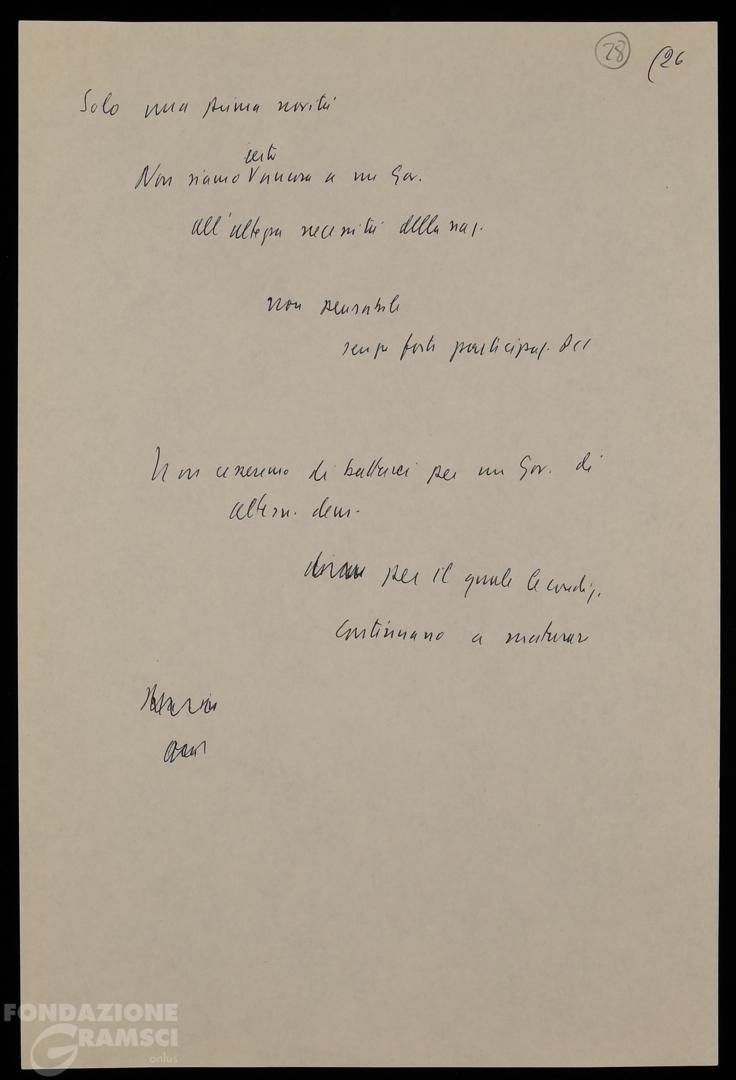 28 (26
Solo una prima novità
certo
Non siamo V ancora a un Gov.
all'altezza necessità della naz.
non pensabile
senza forte partecipaz. PCI
Non cesseremo di batterci per un Gov. di
altern. dem.
per il quale le condiz.
continuano a maturar
FONDAZIONE
GRAMSCI
onlus